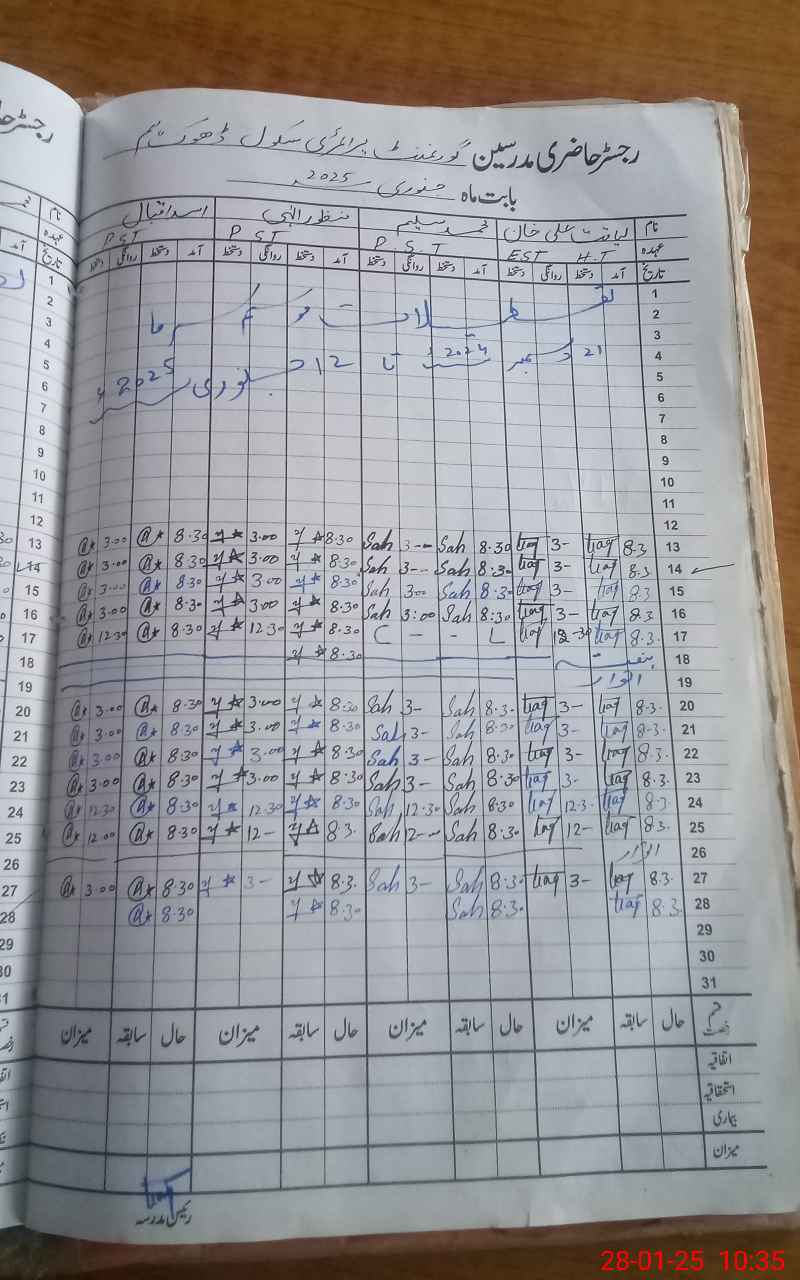 رجسٹر حاضری مدرسین گورنمنٹ پرائمری سکول ڈھوک
بابت ماہ جنوری 2025ء
نام لیاقت علی خان محمد سلیم منظور الٰہی اسد اقبال
عہدہ H.T EST P.S.T P.S.T P.S.T
تاریخ آمد دستخط روانگی دستخط آمد دستخط روانگی دستخط آمد دستخط روانگی دستخط آمد دستخط روانگی دستخط
1
2 تعطیلات موسم سرما
3
4 21 دسمبر 2024ء تا 12 جنوری 2025ء
5
6
7
8
9
10
11
12
13 8.3 liaq 3- liaq 8.30 Sah 3-- Sah 8.30 3.00 8.30 3.00
14 8.3 liaq 3- liaq 8:30 Sah 3-- Sah 8.30 3.00 8.30 3.00
15 8.3 liaq 3- liaq 8.30 Sah 3.00 Sah 8.30 3.00 8.30 3.00
16 8.3 liaq 3- liaq 8:30 Sah 3:00 Sah 8.30 3.00 8.30 3.00
17 8.3. liaq 12-30 liaq L - - C 8.30 12.30 8.30 12.30
18 ہفتہ 8.30
19 اتوار
20 8.3. liaq 3- liaq 8.3- Sah 3- Sah 8.30 3.00 8.30 3.00
21 8.3. liaq 3- liaq 8.30 Sah 3- Sah 8.30 3.00 8.30 3.00
22 8.3. liaq 3- liaq 8.30 Sah 3- Sah 8.30 3.00 8.30 3.00
23 8.3. liaq 3- liaq 8.30 Sah 3- Sah 8.30 3.00 8.30 3.00
24 8.3. liaq 12.3- liaq 8.30 Sah 12.30 Sah 8.30 12.30 8.30 12.30
25 8.3. liaq 12- liaq 8.30 Sah 12-- Sah 8.3. 12- 8.30 12.00
26 اتوار
27 8.3. liaq 3- liaq 8.30 Sah 3- Sah 8.3. 3- 8.30 3.00
28 8.3 liaq 8.3. Sah 8.30 8.30
29
30
31
قسم رخصت حال سابقہ میزان حال سابقہ میزان حال سابقہ میزان حال سابقہ میزان
اتفاقیہ
استحقاقیہ
بیماری
میزان
liaq
رئیس مدرسہ
28-01-25 10:35